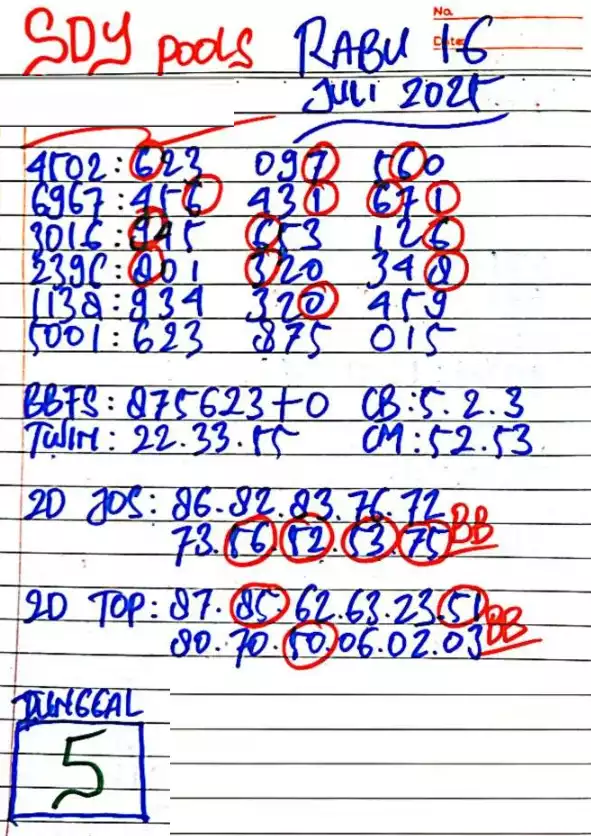 SDY pools RABU 16
No.
Date:
JULI 2025
4502:623 097 560
6967:456 431 671
3016:945 653 126
2396:801 320 348
1138:934 320 459
5001:623 875 015
BBFS: 875623+0 CB:5.2.3
TWIN: 22.33.55 CM:52.53
2D JOS: 86.82.83.76.72
73.56.52.53.75 BB
2D TOP: 87.85.62.63.23.51
80.70.50.06.02.03 BB
TUNGGAL
5